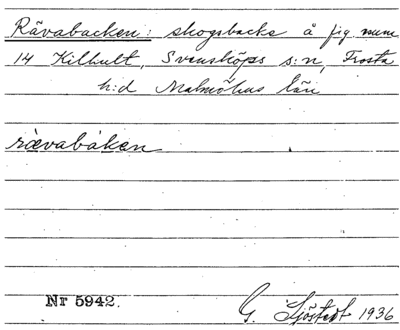 Rävabacken: skogsbacke å fig. num
14 Kilhult, Svensköps s:n, Frosta
h:d Malmöhus län
rävabáken
Nr 5942.
G. Sjöstedt 1936